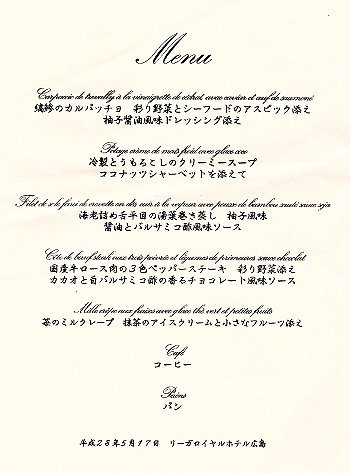 Menu
Carpaccio de trevally à la vinaigrette de citrat avec caviar et œuf de saumoné
縞鯵のカルパッチョ　彩り野菜とシーフードのアスピック添え
柚子醤油風味ドレッシング添え
Potage crème de maïs froid avec glace coco
冷製とうもろこしのクリーミースープ
ココナッツシャーベットを添えて
Filet de sole farci de crevette en des cuit à la vapeur avec pousse de bambou sauté sauce soja
海老詰め舌平目の湯葉巻き蒸し　柚子風味
醤油とバルサミコ酢風味ソース
Côte de bœuf steak aux trois poivrés et légumes de primeures sauce chocolat
国産牛ロース肉の３色ペッパーステーキ　彩り野菜添え
カカオと白バルサミコ酢の香るチョコレート風味ソース
Mille crêpe aux fraises avec glace thé vert et petits fruits
苺のミルクレープ　抹茶のアイスクリームと小さなフルーツ添え
Café
コーヒー
Pains
パン
平成２８年５月１７日　リーガロイヤルホテル広島